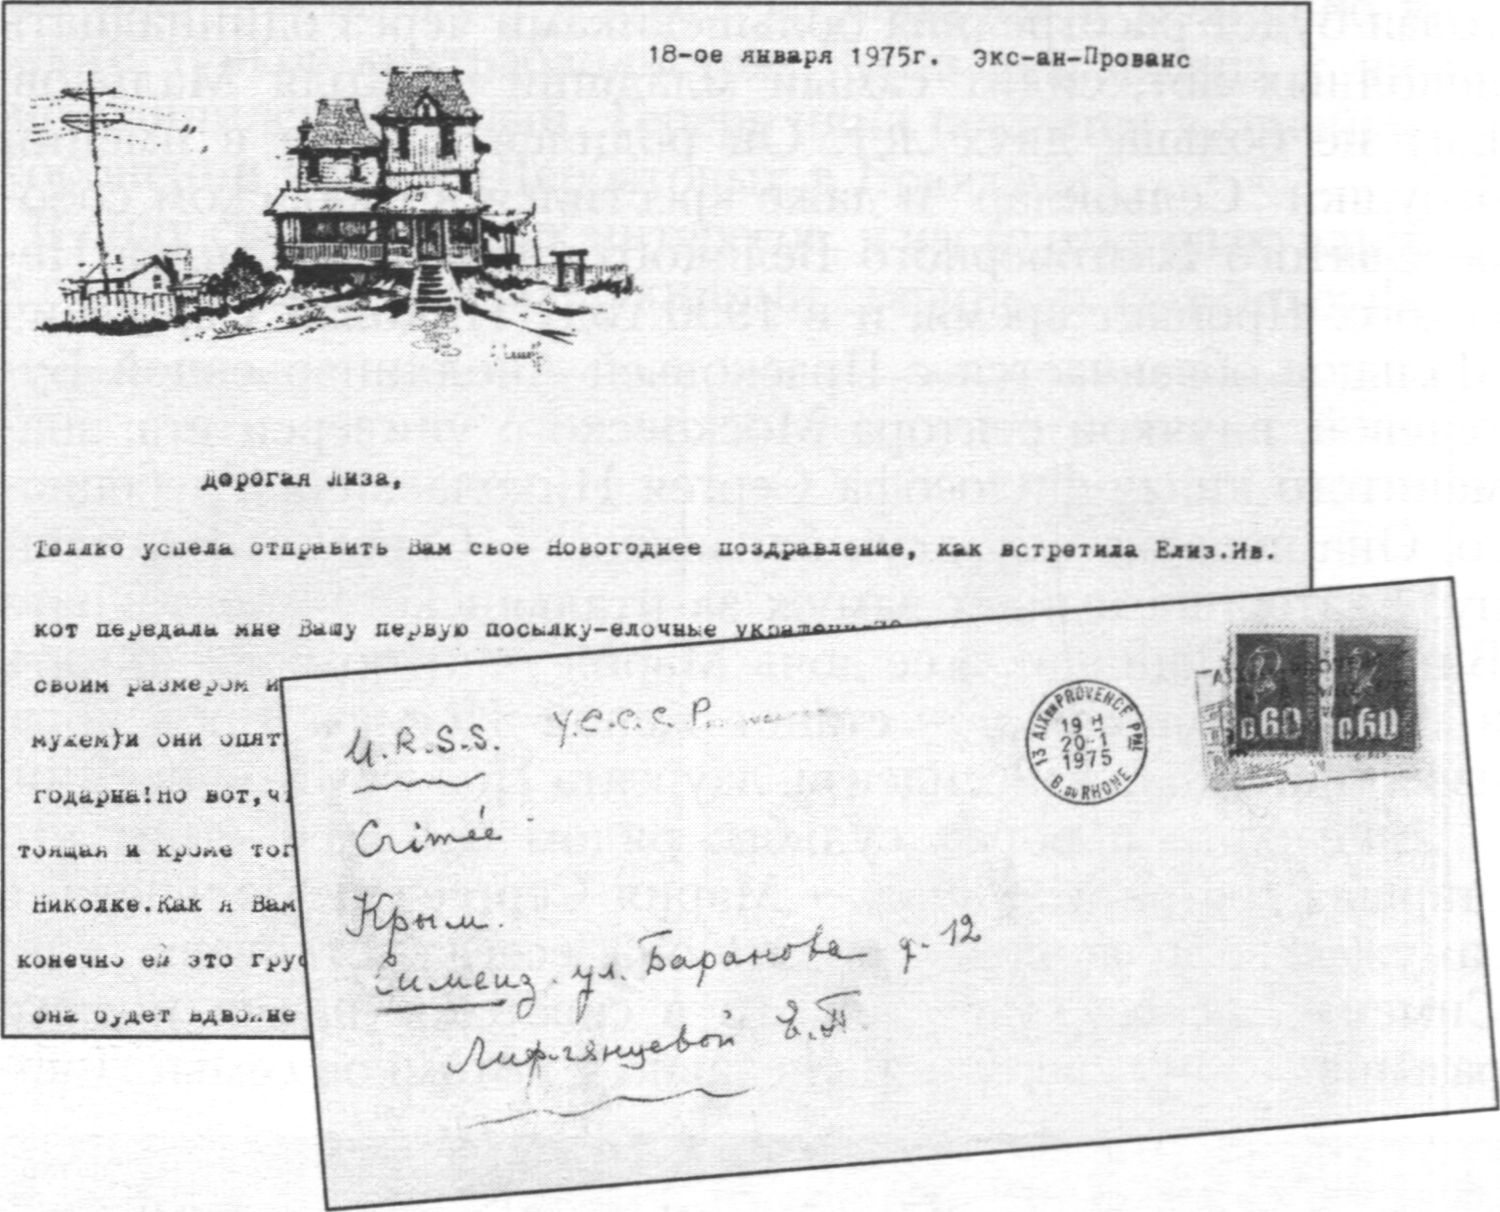 18-ое января 1975г. Экс-ан-Прованс
Дорогая Лиза,
Только успела отправить Вам свое Новогоднее поздравление, как встретила Елиз.Ив.
кот передала мне Вашу первую посылку-елочные
своим размером и
мужем)и они опят
годарна!Но вот,
тоящая и кроме тог
Николке.Как я Вам
конечно ей это грус
она будет вдвойне
U.R.S.S. У.С.С.С.Р.
Crimée
Крым.
Симеиз. ул. Баранова д. 12
Лифлянцевой Е.П.
13 AIX EN PROVENCE PPAL
19 H
20-1
1975
B. DU RHONE
0,60
0,60